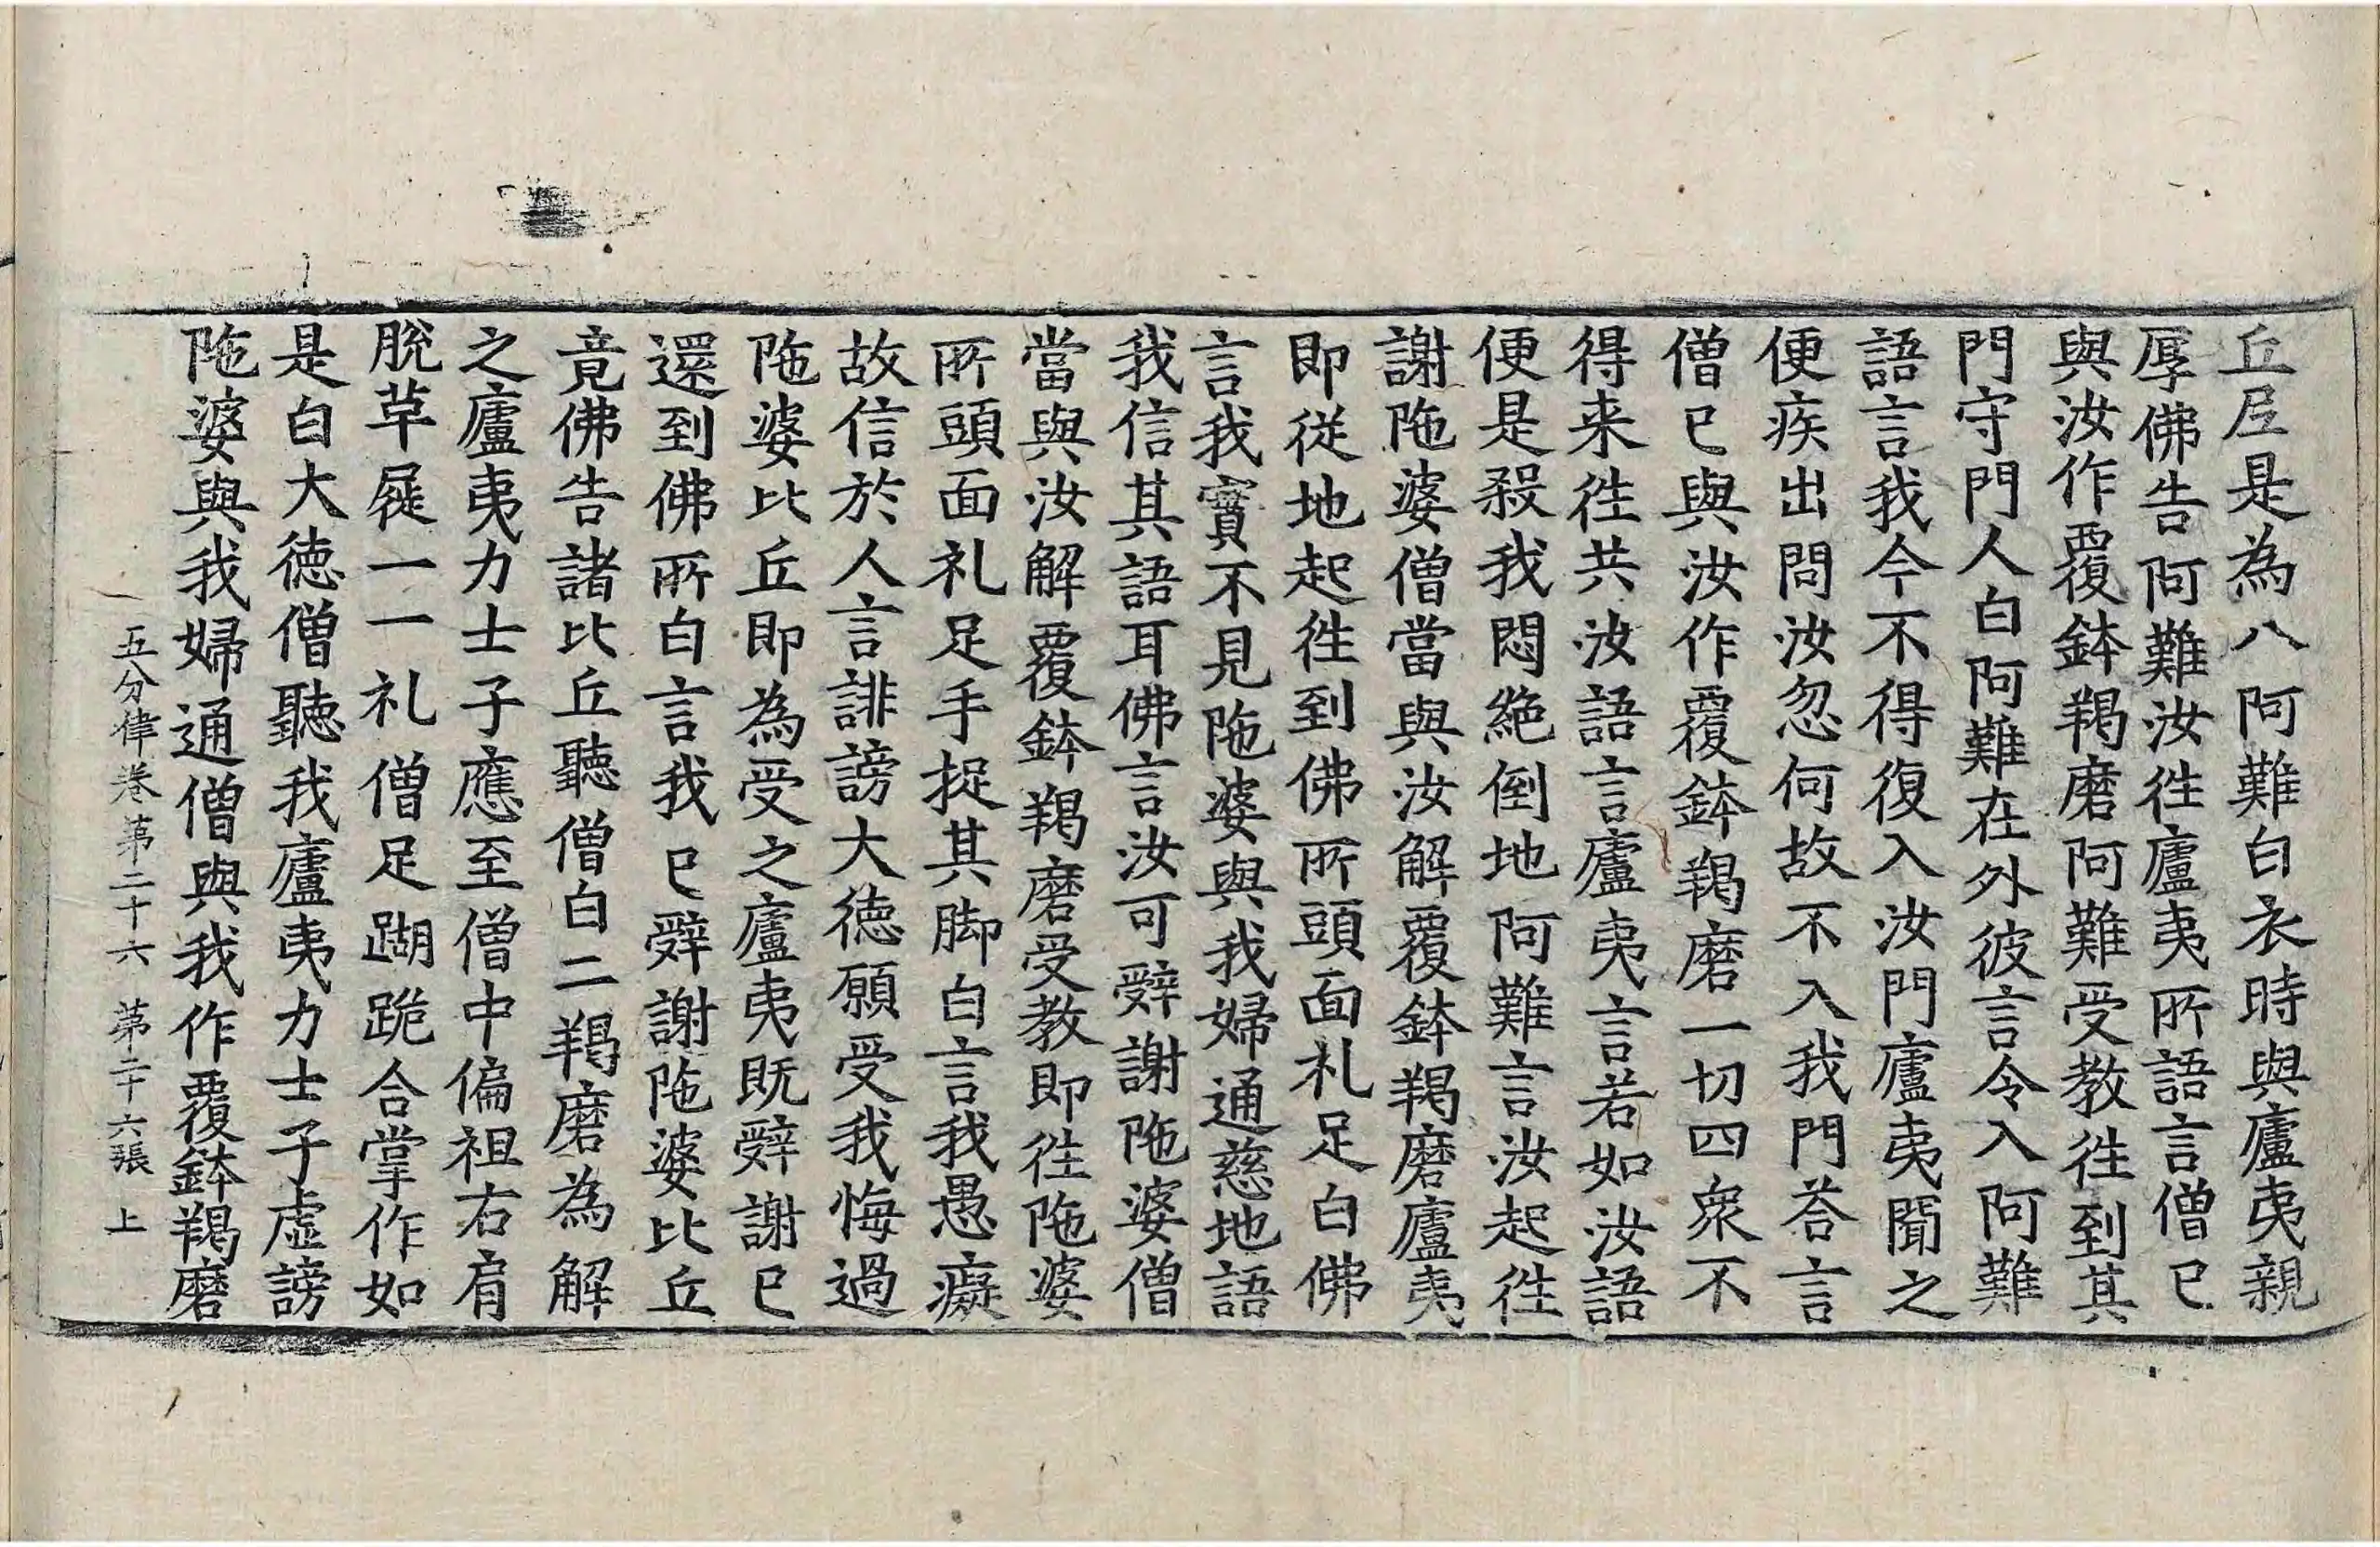 丘尼是為八阿難白衣時與廬夷親
厚佛告阿難汝徃廬夷所語言僧已
與汝作覆鉢羯磨阿難受教徃到其
門守門人白阿難在外彼言令入阿難
語言我今不得復入汝門廬夷聞之
便疾出問汝忽何故不入我門荅言
僧已與汝作覆鉢羯磨一切四衆不
得来徃共汝語言廬夷言若如汝語
便是殺我悶絶倒地阿難言汝起徃
謝陁婆僧當與汝解覆鉢羯磨廬夷
即從地起徃到佛所頭面礼足白佛
言我實不見陁婆與我婦通慈地語
我信其語耳佛言汝可辤謝陁婆僧
當與汝解覆鉢羯磨受教即徃陁婆
所頭面礼足手捉其脚白言我愚癡
故信於人言誹謗大德願受我悔過
陁婆比丘即為受之廬夷既辤謝已
還到佛所白言我已辤謝陁婆比丘
竟佛告諸比丘聽僧白二羯磨為解
之廬夷力士子應至僧中偏袒右肩
脫草屣一一礼僧足蹴跪合掌作如
是白大德僧聽我廬夷力士子虛謗
陁婆與我婦通僧與我作覆鉢羯磨
五分律卷第二十六 第二十六張 上